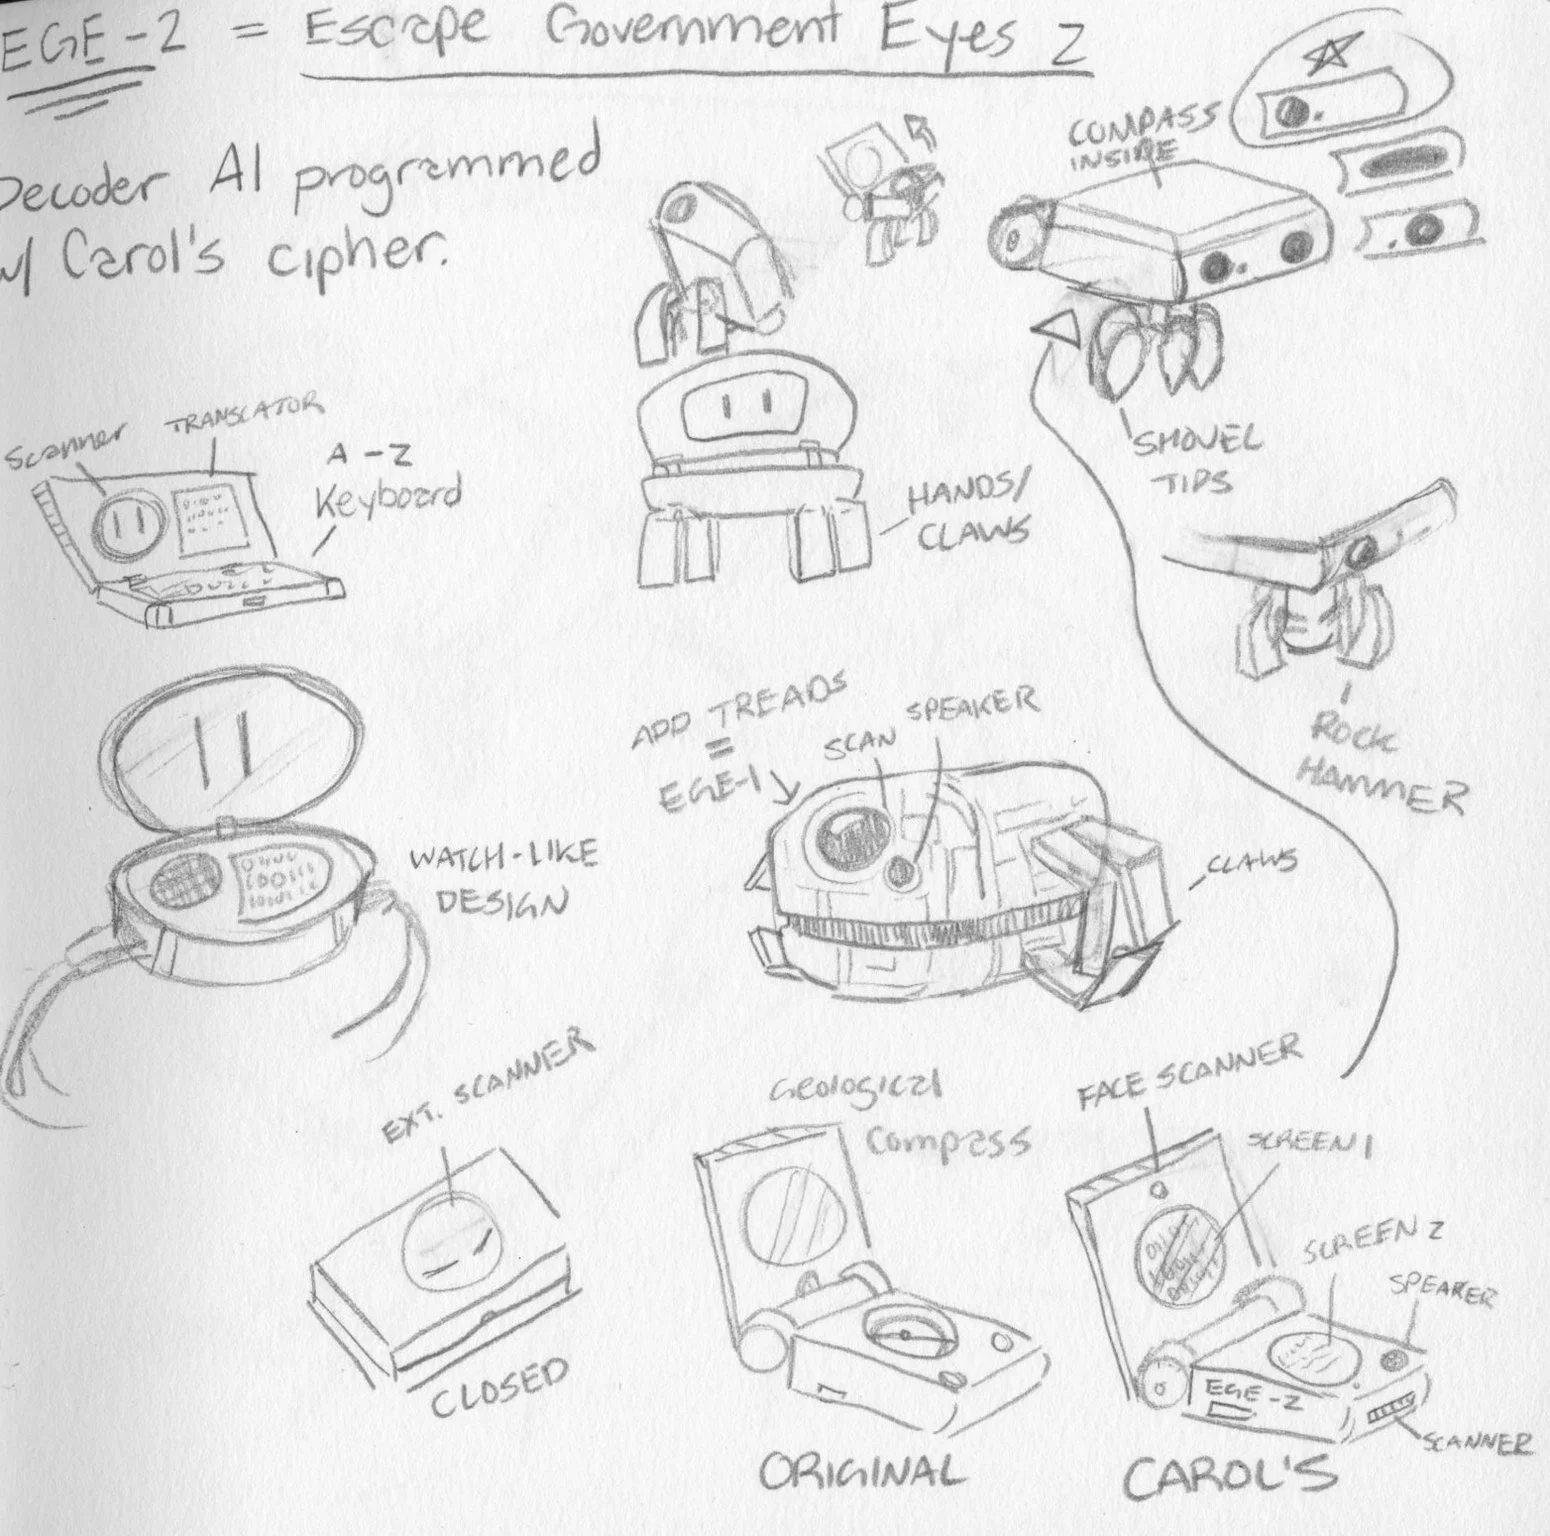 EGE-2 = Escape Government Eyes 2
Decoder AI programmed
w/ Carol's cipher.
COMPASS
INSIDE
SHOVEL
TIPS
Scanner
TRANSLATOR
A-Z
Keyboard
HANDS/
CLAWS
ROCK
HAMMER
ADD TREADS
=
EGE-1
SCAN
SPEAKER
CLAWS
WATCH-LIKE
DESIGN
EXT. SCANNER
CLOSED
Geological
Compass
ORIGINAL
FACE SCANNER
SCREEN 1
SCREEN 2
SPEAKER
EGE-2
SCANNER
CAROL'S